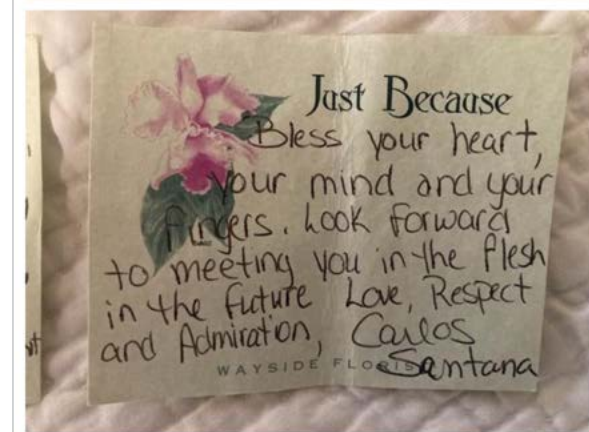 Just Because
Bless your heart,
your mind and your
fingers. Look forward
to meeting you in the flesh
in the future Love, Respect
and Admiration, Carlos
Santana
WAYSIDE FLORIS